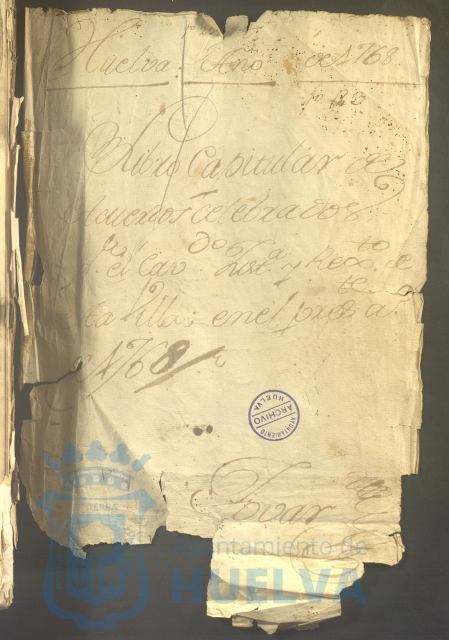 Huelva. Año de 1768
Libro Capitular de
Acuerdos celebrados
p.r el Cav.do Just.a y Rex.to de
ta Villa: en el pres.te a
de 1768
AYUNTAMIENTO
ARCHIVO
HUELVA
Tovar
TIERRA
Ayuntamiento de
HUELVA